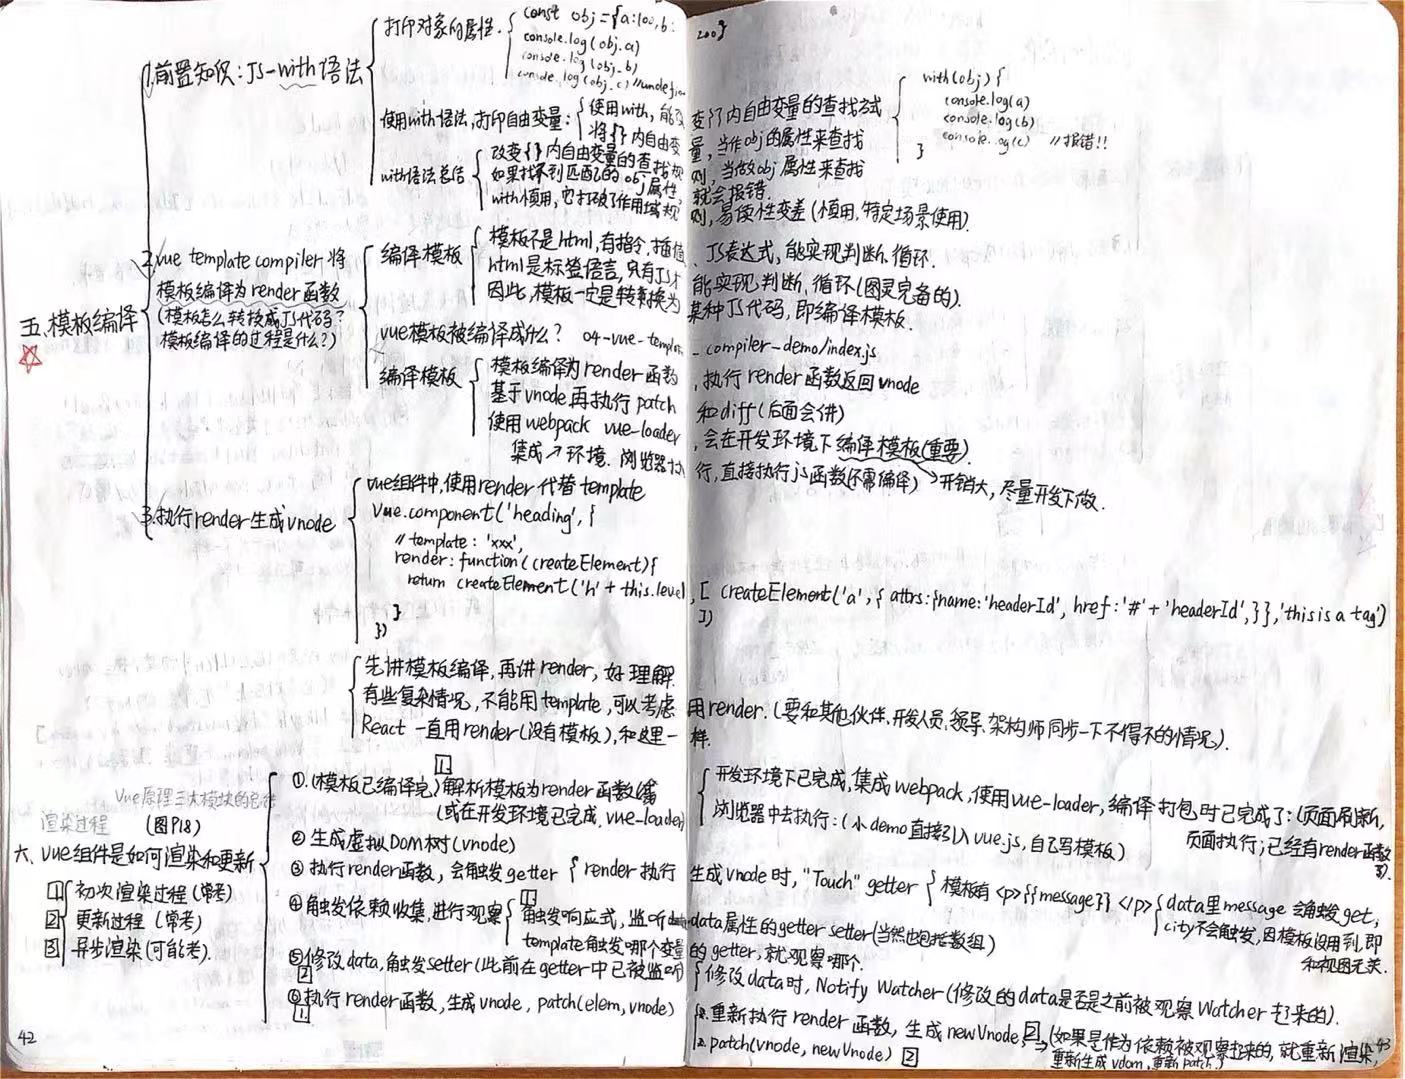 五、模板编译
1.前置知识：JS-with语法
打印对象的属性.
const obj={a:100,b:200}
console.log(obj.a)
console.log(obj.b)
console.log(obj.c) //undefin
使用with语法,打印自由变量:
使用with，能改变{}内自由变量的查找方式
将{}内自由变量，当作obj的属性来查找
with(obj){
console.log(a)
console.log(b)
console.log(c) //报错!!
}
with语法总结
改变{}内自由变量的查找规则，当做obj属性来查找
如果找不到匹配的obj属性，就会报错.
with慎用，它打破了作用域规则，易读性变差(慎用,特定场景使用).
2.vue template compiler将
模板编译为render函数
(模板怎么转换成JS代码?
模板编译的过程是什么?)
编译模板
模板不是html,有指令,插值、JS表达式，能实现判断、循环.
html是标签语言,只有JS才能实现判断、循环(图灵完备的).
因此,模板一定是转换为某种JS代码，即编译模板.
vue模板被编译成什么? 04-vue-template-compiler-demo/index.js
编译模板
模板编译为render函数，执行render函数返回vnode
基于vnode再执行patch和diff(后面会讲)
使用webpack vue-loader，会在开发环境下编译模板(重要)
集成→环境. 浏览器 行,直接执行js函数(还需编译)→开销大，尽量开发下做.
3.执行render生成vnode
vue组件中,使用render代替template
Vue.component('heading',{
//template:'xxx',
render:function(createElement){
return createElement('h'+this.level,[createElement('a',{attrs:{name:'headerId',href:'#'+'headerId',}},'this is a tag')
])
}
})
先讲模板编译,再讲render，好理解.
有些复杂情况，不能用template，可以考虑用render.(要和其他伙伴、开发人员、领导、架构师同步一下不得不的情况).
React一直用render(没有模板),和这里一样.
Vue原理三大模块的总结
渲染过程 (图P18)
六、vue组件是如何渲染和更新
1 初次渲染过程(常考)
2 更新过程 (常考)
3 异步渲染(可能考).
1
①.(模板已编译完)解析模板为render函数
(或在开发环境已完成,vue-loader)
开发环境下已完成,集成webpack,使用vue-loader,编译打包时已完成了:(页面刷新,
页面执行;已经有render函数
了).
浏览器中去执行:(小demo直接引入vue.js,自己写模板)
②生成虚拟DOM树(vnode)
③执行render函数，会触发getter
render执行生成vnode时,"Touch" getter
模板有<p>{{message}}</p>
data里message会触发get,
city不会触发,因模板没用到,即
和视图无关.
④触发依赖收集,进行观察
1
触发响应式，监听data属性的getter setter(当然也包括数组)
template触发哪个变量的getter,就观察哪个.
⑤修改data,触发setter(此前在getter中已被监听)
2
修改data时,Notify Watcher(修改的data是否是之前被观察Watcher起来的).
⑥执行render函数,生成vnode,patch(elem,vnode)
1
1.重新执行render函数，生成newVnode 2→(如果是作为依赖被观察起来的,就重新渲染,
重新生成vdom,重新patch.)
2.patch(vnode,newVnode) 2
42
43